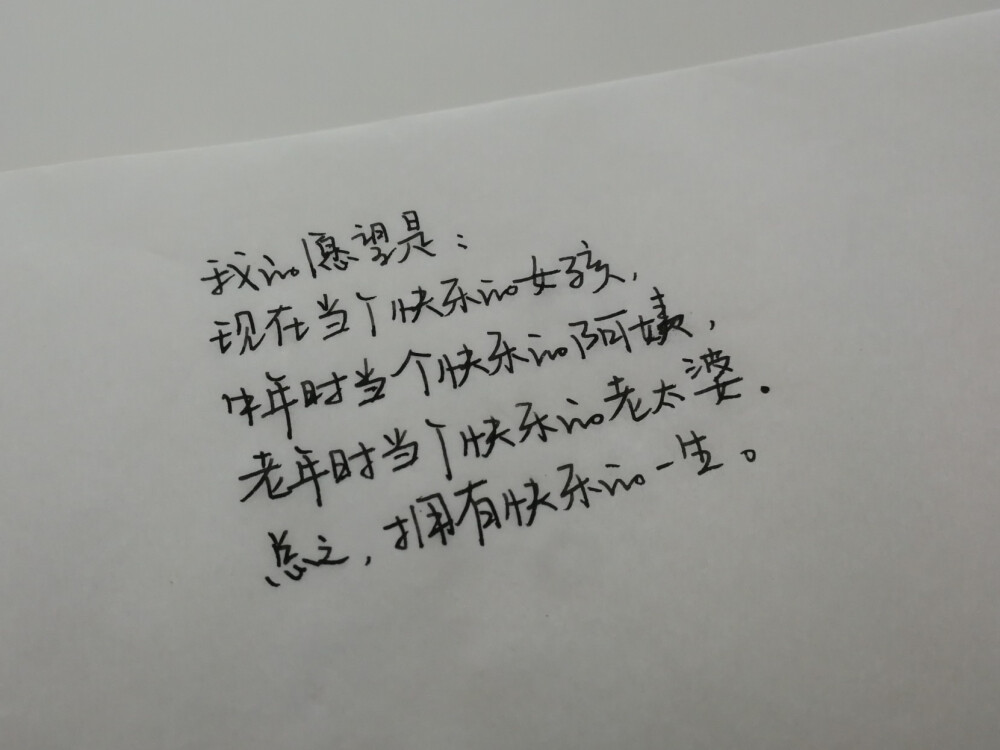 我的愿望是：
现在当个快乐的女孩，
中年时当个快乐的阿姨，
老年时当个快乐的老太婆.
总之，拥有快乐的一生。